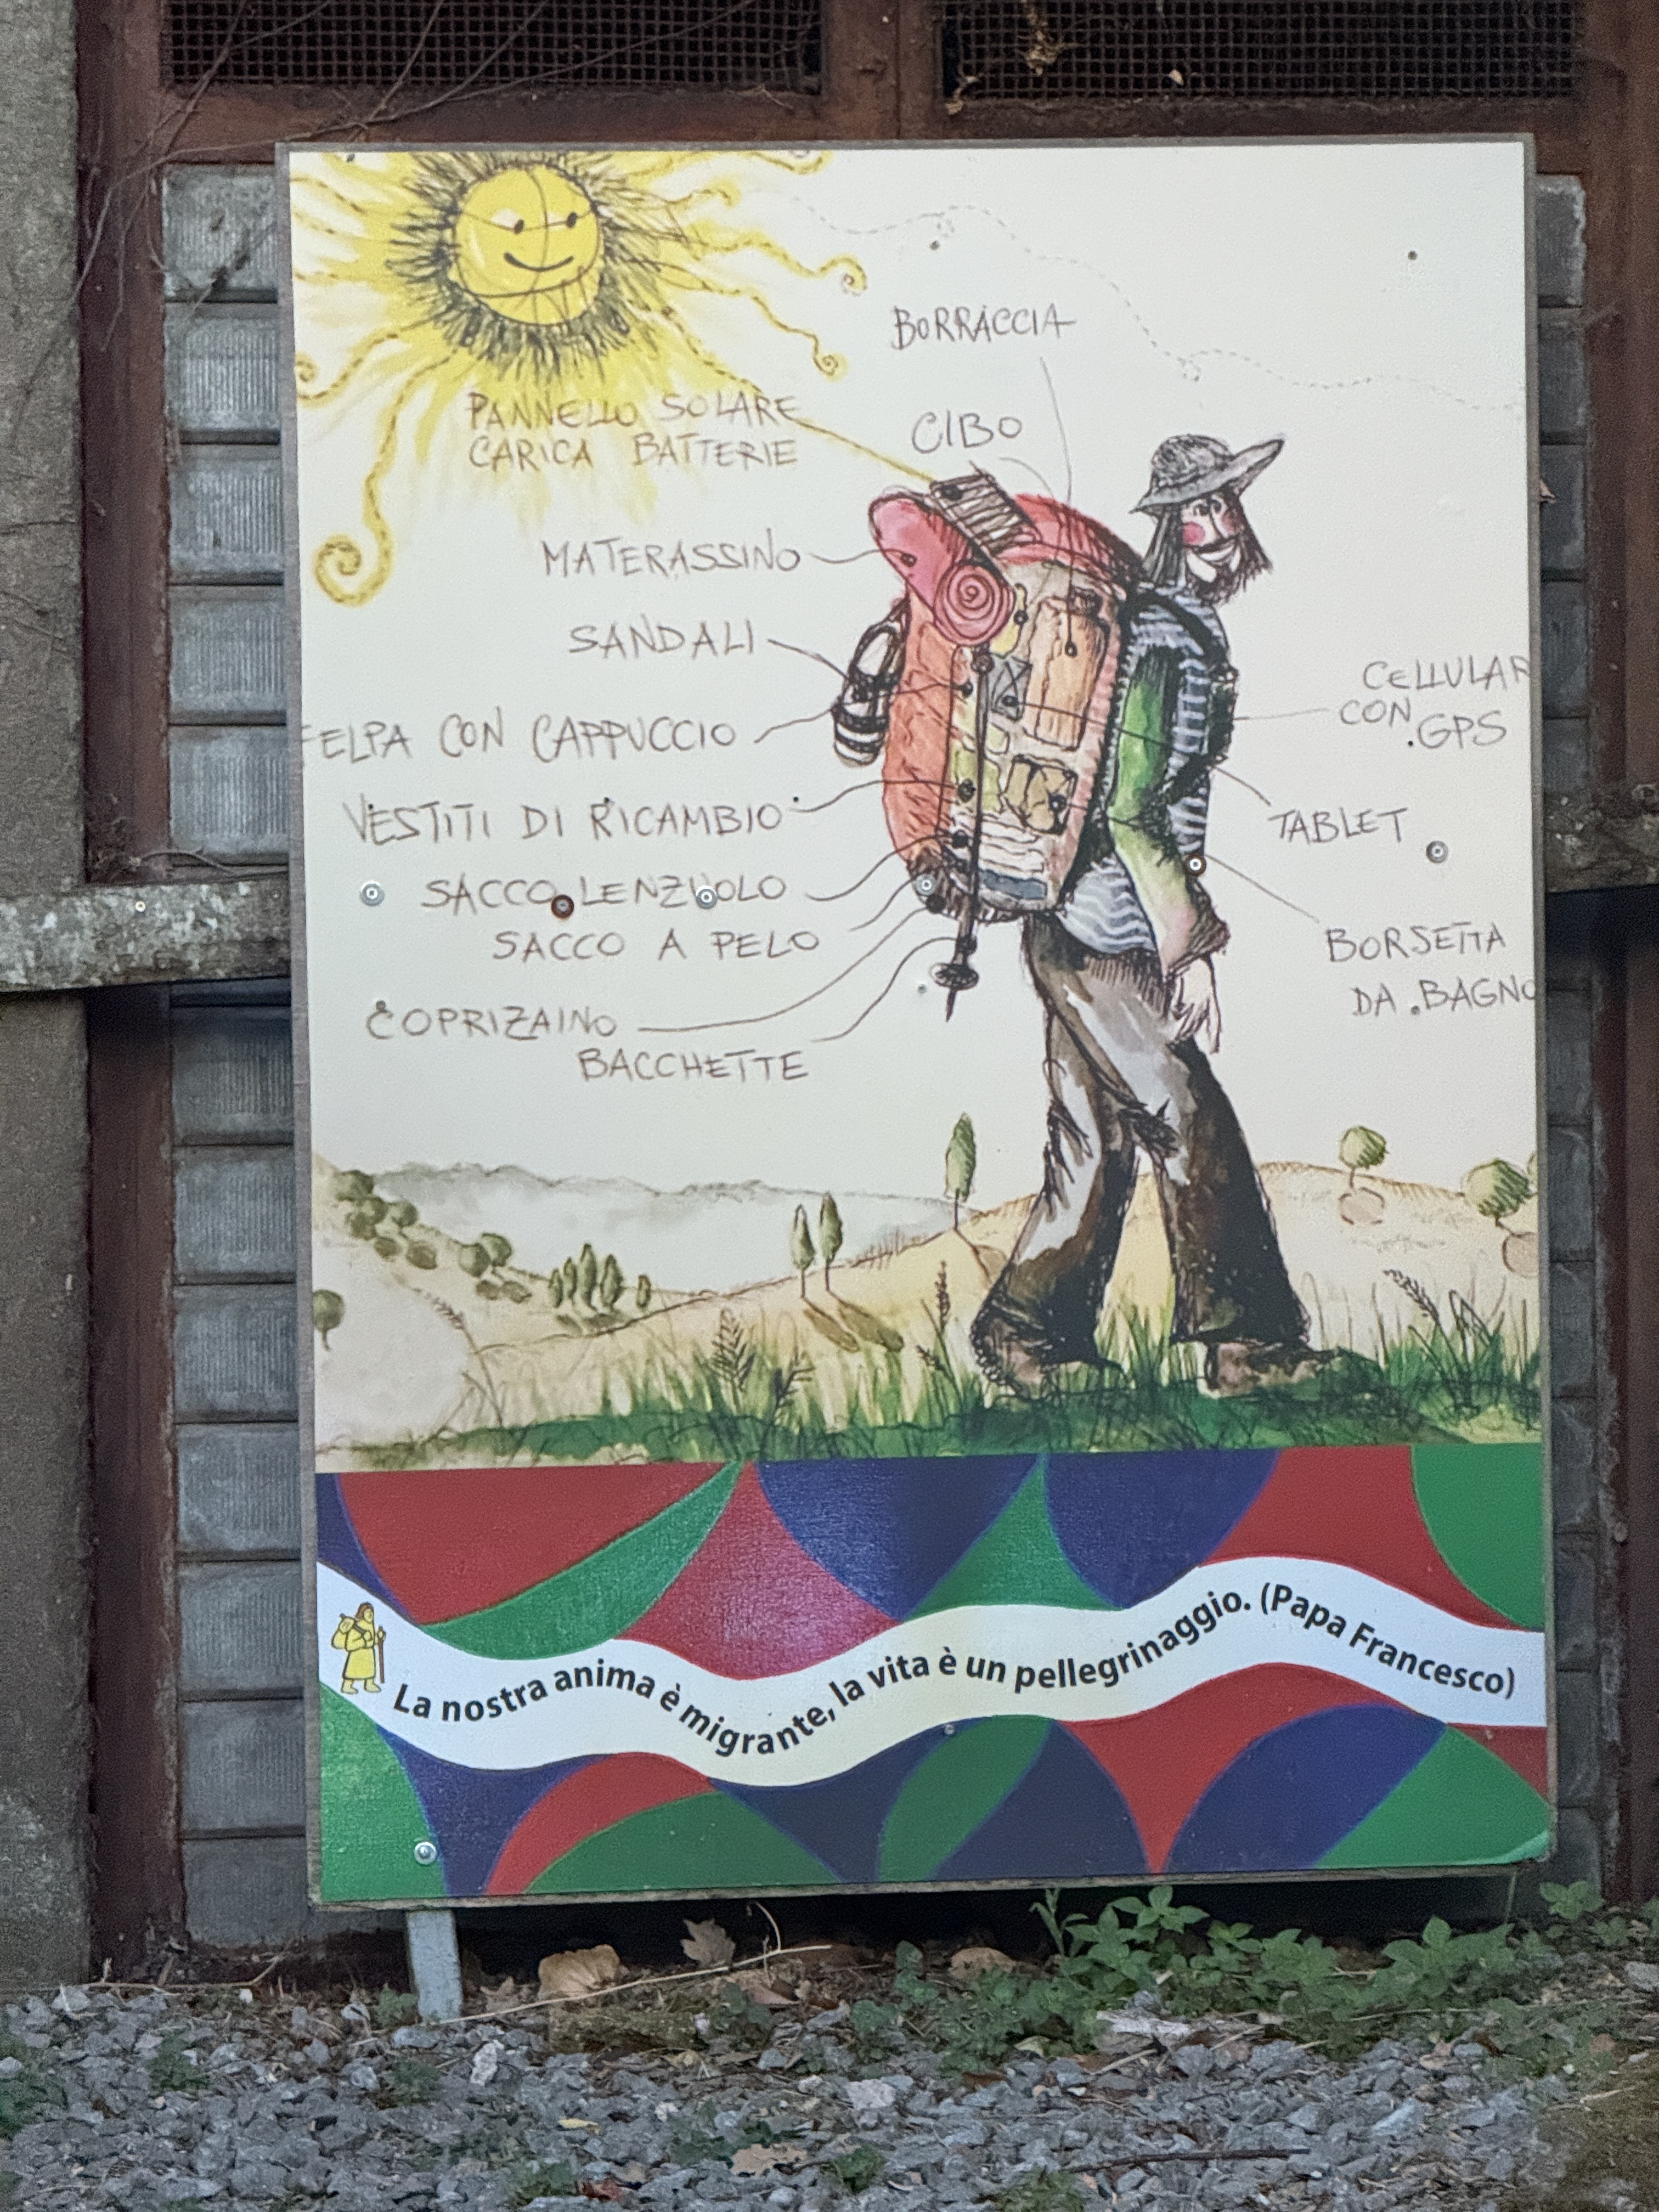 BORRACCIA
PANNELLO SOLARE
CARICA BATTERIE
CIBO
MATERASSINO
SANDALI
FELPA CON CAPPUCCIO
CELLULAR
CON GPS
VESTITI DI RICAMBIO
TABLET
SACCO LENZUOLO
SACCO A PELO
BORSETTA
DA BAGNO
COPRIZAINO
BACCHETTE
La nostra anima è migrante, la vita è un pellegrinaggio. (Papa Francesco)